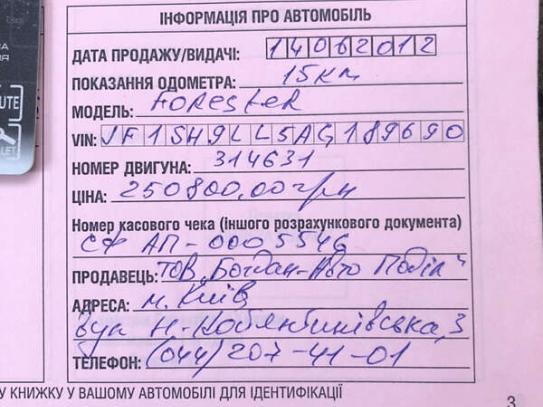 ІНФОРМАЦІЯ ПРО АВТОМОБІЛЬ
ДАТА ПРОДАЖУ/ВИДАЧІ: 14062012
ПОКАЗАННЯ ОДОМЕТРА: 15км
МОДЕЛЬ: FORESTER
VIN: JF1SH9LL5AG189690
НОМЕР ДВИГУНА: 314631
ЦІНА: 250800,00грн
Номер касового чека (іншого розрахункового документа)
СФ АП-0005546
ПРОДАВЕЦЬ: ТОВ "Богдан-Авто Поділ"
АДРЕСА: м. Київ
вул Н-Ковалевська, 3
ТЕЛЕФОН: (044) 207-41-01
У КНИЖКУ У ВАШОМУ АВТОМОБІЛІ ДЛЯ ІДЕНТИФІКАЦІЇ
3
UTE